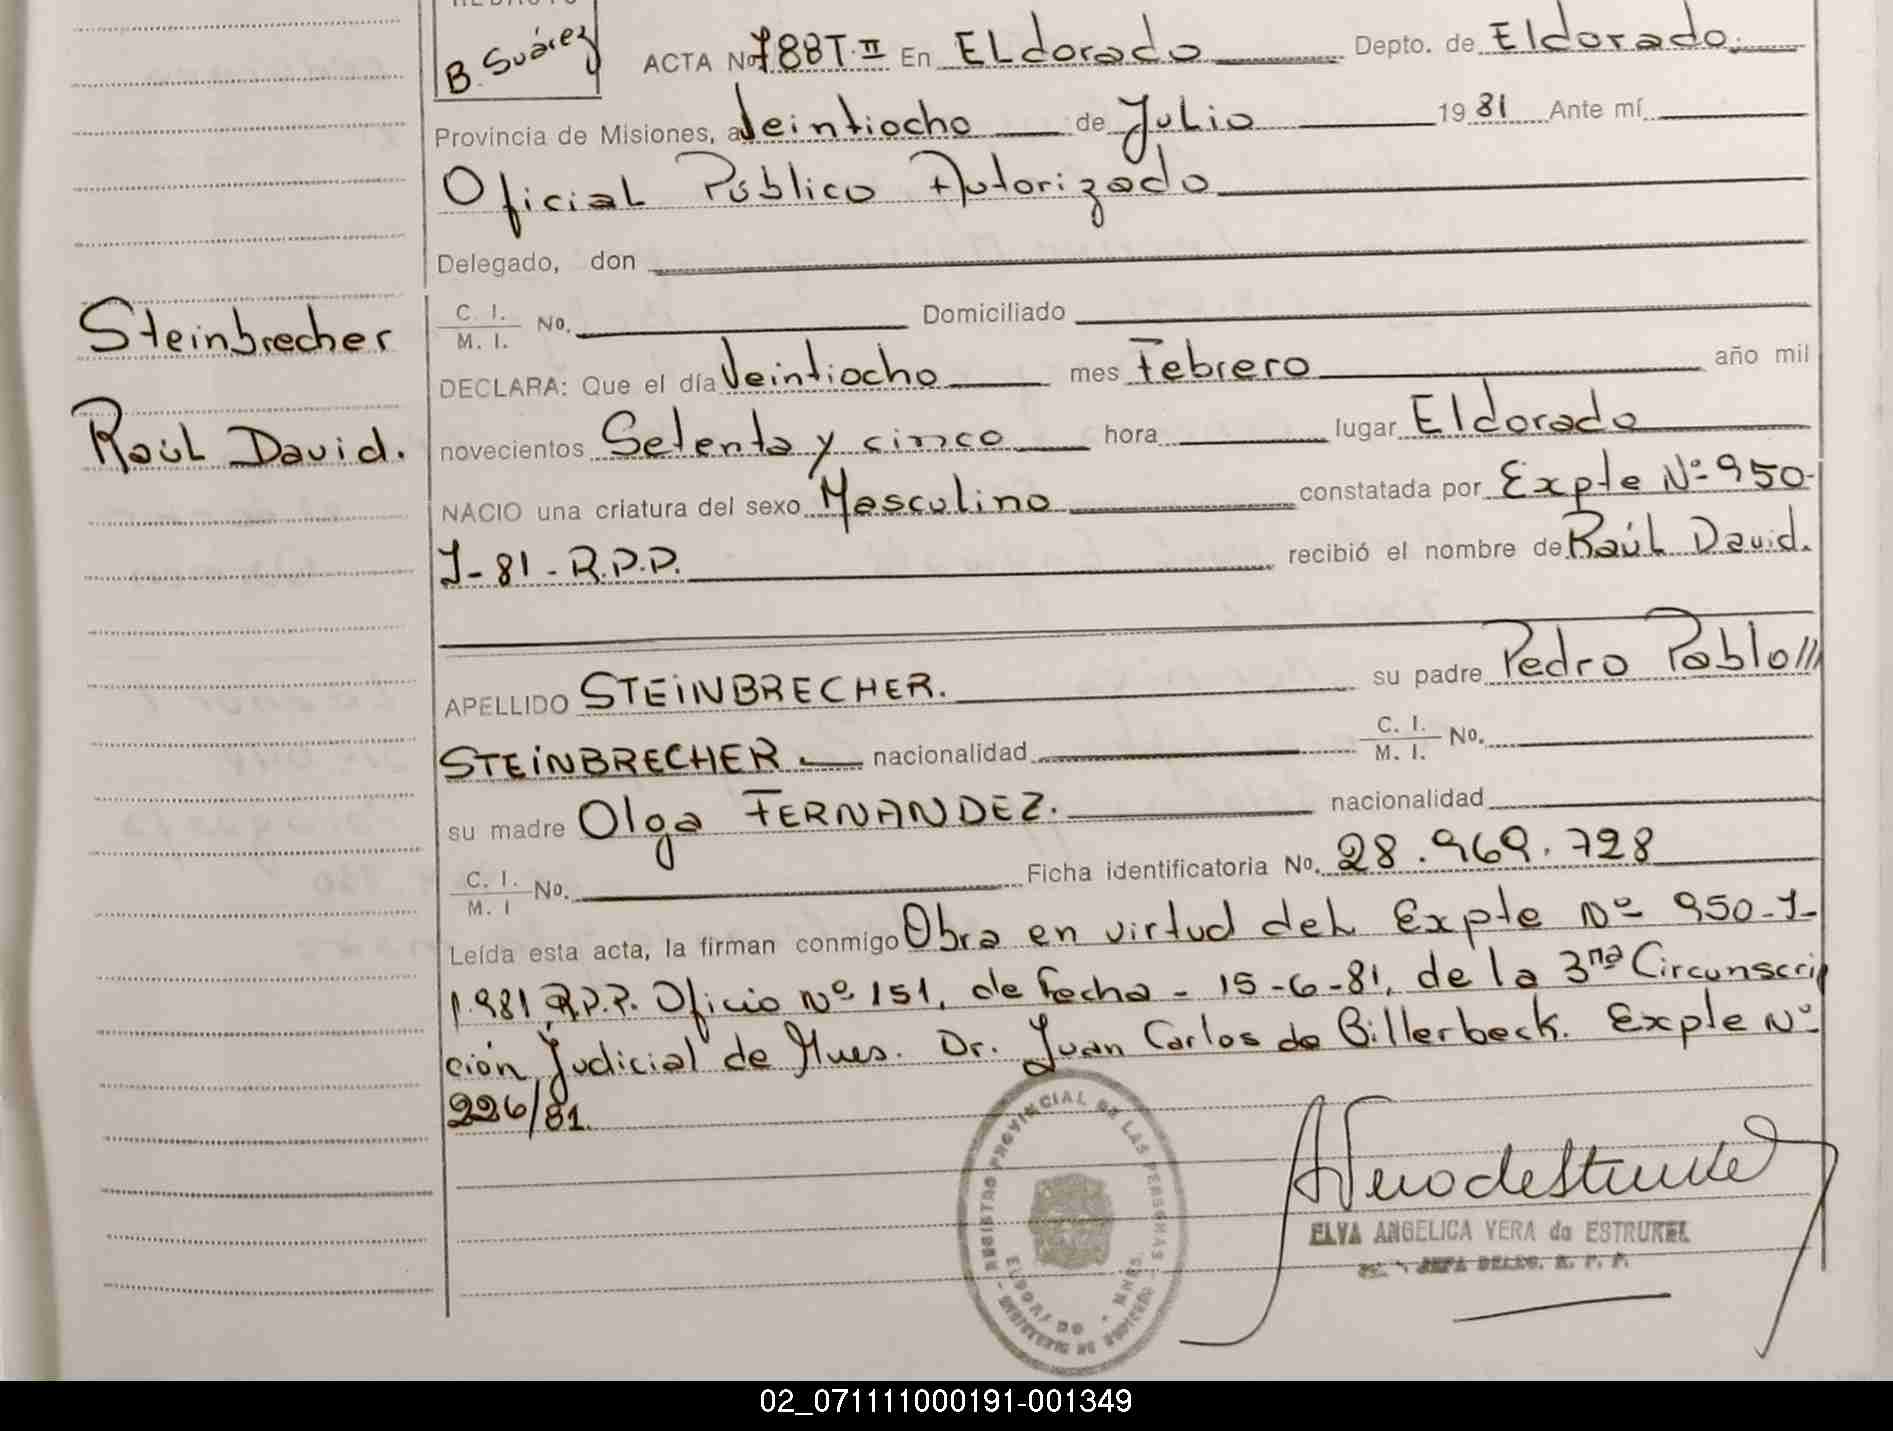 B. Suárez
ACTA No 788 T. II En ELdorado Depto. de Eldorado.
Provincia de Misiones, a Veintiocho de Julio 19 81 Ante mí
Oficial Público Autorizado
Delegado, don
C. I. / M. I. No. Domiciliado
Steinbrecher
Raúl David.
DECLARA: Que el día Veintiocho mes Febrero año mil
novecientos Setenta y cinco hora lugar Eldorado
NACIO una criatura del sexo Masculino constatada por Expte Nº 950-
J-81-R.P.P. recibió el nombre de Raúl David.
APELLIDO STEINBRECHER. su padre Pedro Pablo///
STEINBRECHER nacionalidad C. I. / M. I. No.
su madre Olga FERNANDEZ. nacionalidad
C. I. / M. I No. Ficha identificatoria No. 28.969.728
Leída esta acta, la firman conmigo Obra en virtud del Expte Nº 950-J-
1.981 R.P.P. Oficio Nº 151, de Fecha - 15-6-81, de la 3ra Circunscri
ción Judicial de Mnes. Dr. Juan Carlos de Billerbeck. Expte Nº
226/81.
REGISTRO PROVINCIAL DE LAS PERSONAS
ELDORADO - MNES.
ELVA ANGELICA VERA de ESTRUREL
JEFA DELEG. R. P. P.
02_071111000191-001349